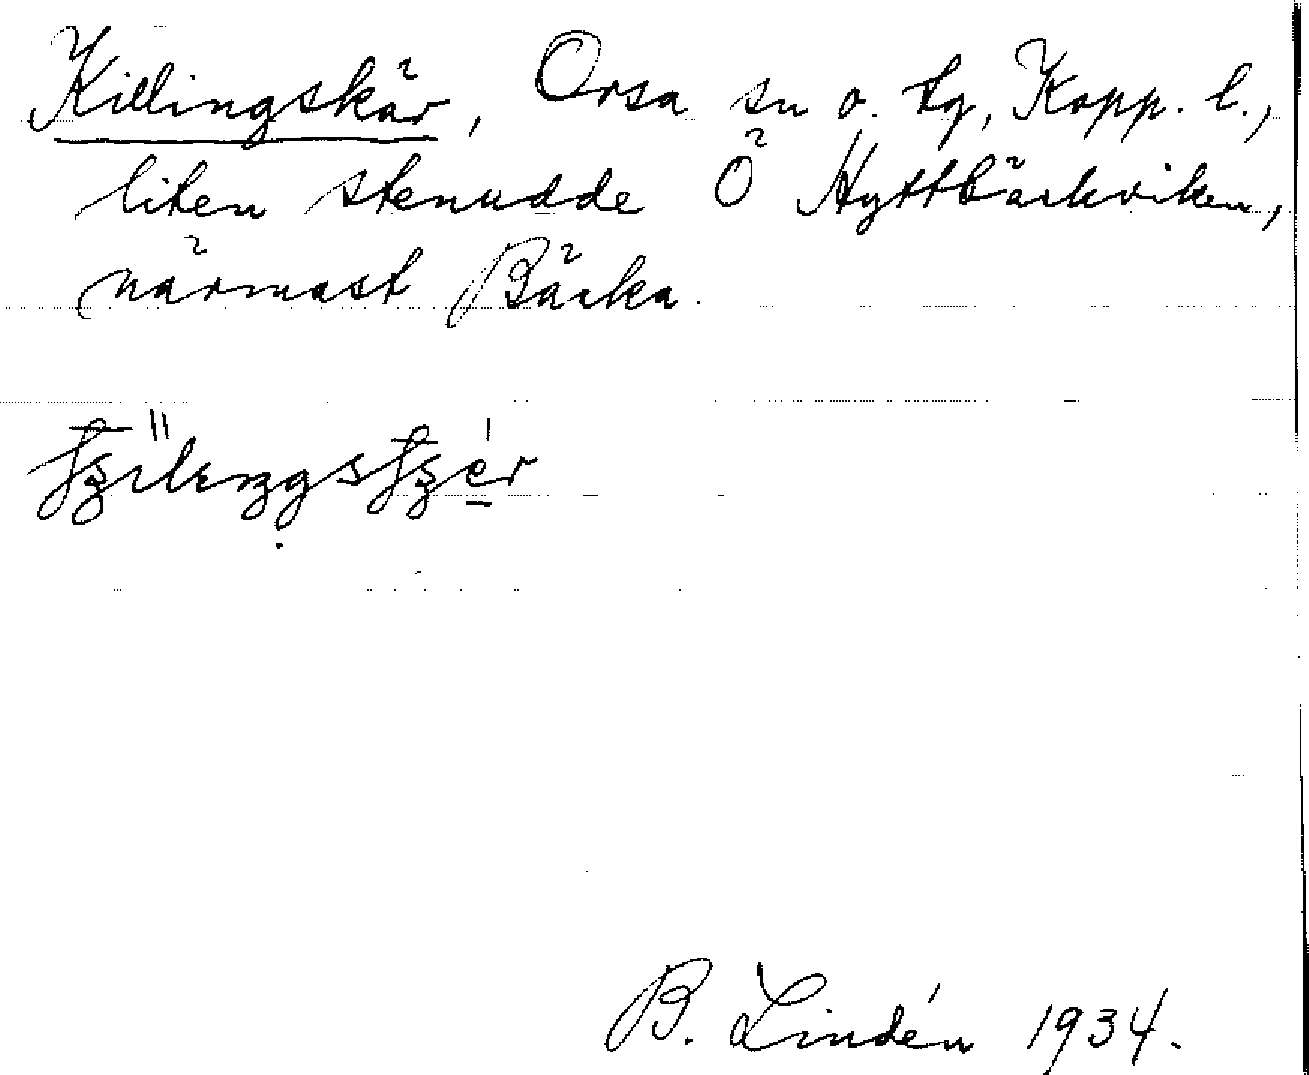 Killingskär, Orsa sn o. tg, Kopp. l.,
liten stenudde Ö Hyttbäckviken,
närmast Bäcka.
B. Lindén 1934.